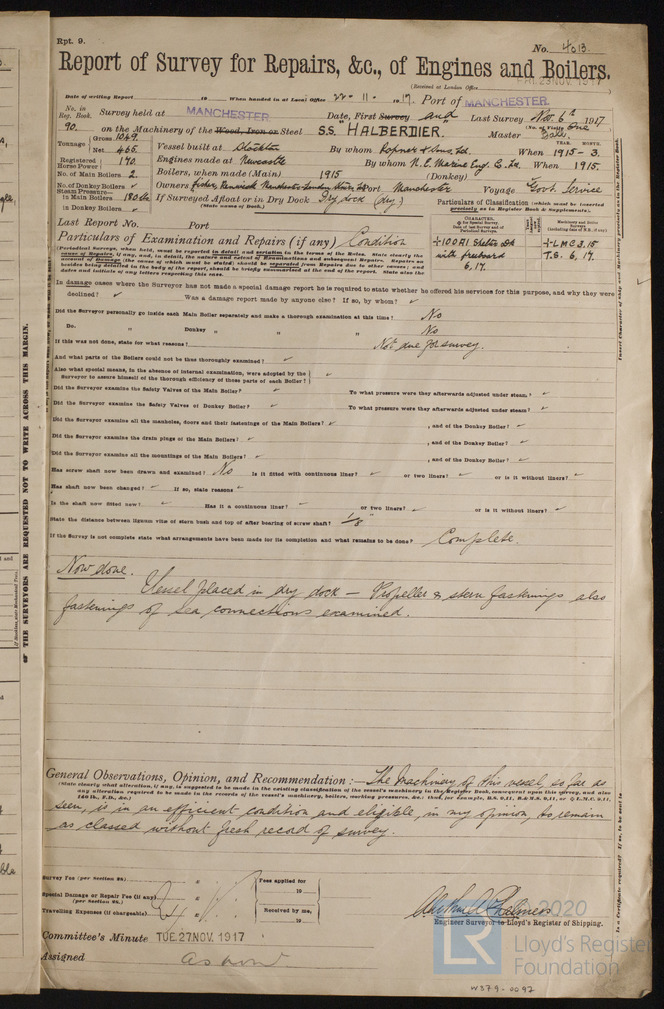 Rpt. 9.
No. 4013.
Report of Survey for Repairs, &c., of Engines and Boilers.
(Received at London Office FRI. 23 NOV. 1917
Date of writing Report 19 When handed in at Local Office 22 - 11 - 1917 Port of MANCHESTER.
No. in Reg. Book. Survey held at MANCHESTER Date, First Survey and Last Survey Nov. 6th 1917
(No. of Visits One
90. on the Machinery of the Wood, Iron or Steel S.S. "HALBERDIER. Master
Tonnage Gross 1049. Net 465. Vessel built at Stockton By whom Ropner & Sons Ld. When 1915 - 3.
YEAR. MONTH.
Registered Horse Power 190. Engines made at Newcastle By whom N.E. Marine Eng. C. Ld. When 1915.
No. of Main Boilers 2. Boilers, when made (Main) 1915 (Donkey)
No. of Donkey Boilers ✓ Owners Fisher, Renwick Manchester-London Port Manchester Voyage Govt. Service
Steam Pressure in Main Boilers 180 lbs in Donkey Boilers ✓ If Surveyed Afloat or in Dry Dock Dry dock (dry)
(State name of Dock.)
Particulars of Classification (which must be inserted precisely as in Register Book & Supplements).
Last Report No. Port
Particulars of Examination and Repairs (if any) Condition
+100A1 Shelter Dk with freeboard 6,17.
+LMC 3.15
T.S. 6,17.
In damage cases where the Surveyor has not made a special damage report he is required to state whether he offered his services for this purpose, and why they were
declined? ✓ Was a damage report made by anyone else? If so, by whom? ✓
Did the Surveyor personally go inside each Main Boiler separately and make a thorough examination at this time? No
Do. " Donkey " " " No
If this was not done, state for what reasons? Not due for survey.
And what parts of the Boilers could not be thus thoroughly examined? ✓
Also what special means, in the absence of internal examination, were adopted by the
Surveyor to assure himself of the thorough efficiency of those parts of each Boiler? ✓
Did the Surveyor examine the Safety Valves of the Main Boiler? ✓ To what pressure were they afterwards adjusted under steam? ✓
Did the Surveyor examine the Safety Valves of Donkey Boiler? ✓ To what pressure were they afterwards adjusted under steam? ✓
Did the Surveyor examine all the manholes, doors and their fastenings of the Main Boilers? ✓ , and of the Donkey Boiler? ✓
Did the Surveyor examine the drain plugs of the Main Boilers? ✓ , and of the Donkey Boiler? ✓
Did the Surveyor examine all the mountings of the Main Boilers? ✓ , and of the Donkey Boiler? ✓
Has screw shaft now been drawn and examined? No Is it fitted with continuous liner? ✓ or two liners? ✓ or is it without liners? ✓
Has shaft now been changed? ✓ If so, state reasons ✓
Is the shaft now fitted new? ✓ Has it a continuous liner? ✓ or two liners? ✓ or is it without liners? ✓
State the distance between lignum vitæ of stern bush and top of after bearing of screw shaft? 1/8"
If the Survey is not complete state what arrangements have been made for its completion and what remains to be done? Complete.
Now done.
Vessel placed in dry dock — Propeller & stern fastenings also
fastenings of sea connections examined.
General Observations, Opinion, and Recommendation :— The machinery of this vessel, so far as
seen, is in an efficient condition and eligible, in my opinion, to remain
as classed without fresh record of survey.
Survey Fee (per Section 28)
Special Damage or Repair Fee (if any) (per Section 28.)
Travelling Expenses (if chargeable)
Fees applied for
19
Received by me,
19
Engineer Surveyor to Lloyd's Register of Shipping.
Committee's Minute TUE. 27 NOV. 1917
Assigned as now
THE SURVEYORS ARE REQUESTED NOT TO WRITE ACROSS THIS MARGIN.
2020
LR
Lloyd's Register
Foundation
W379-0092